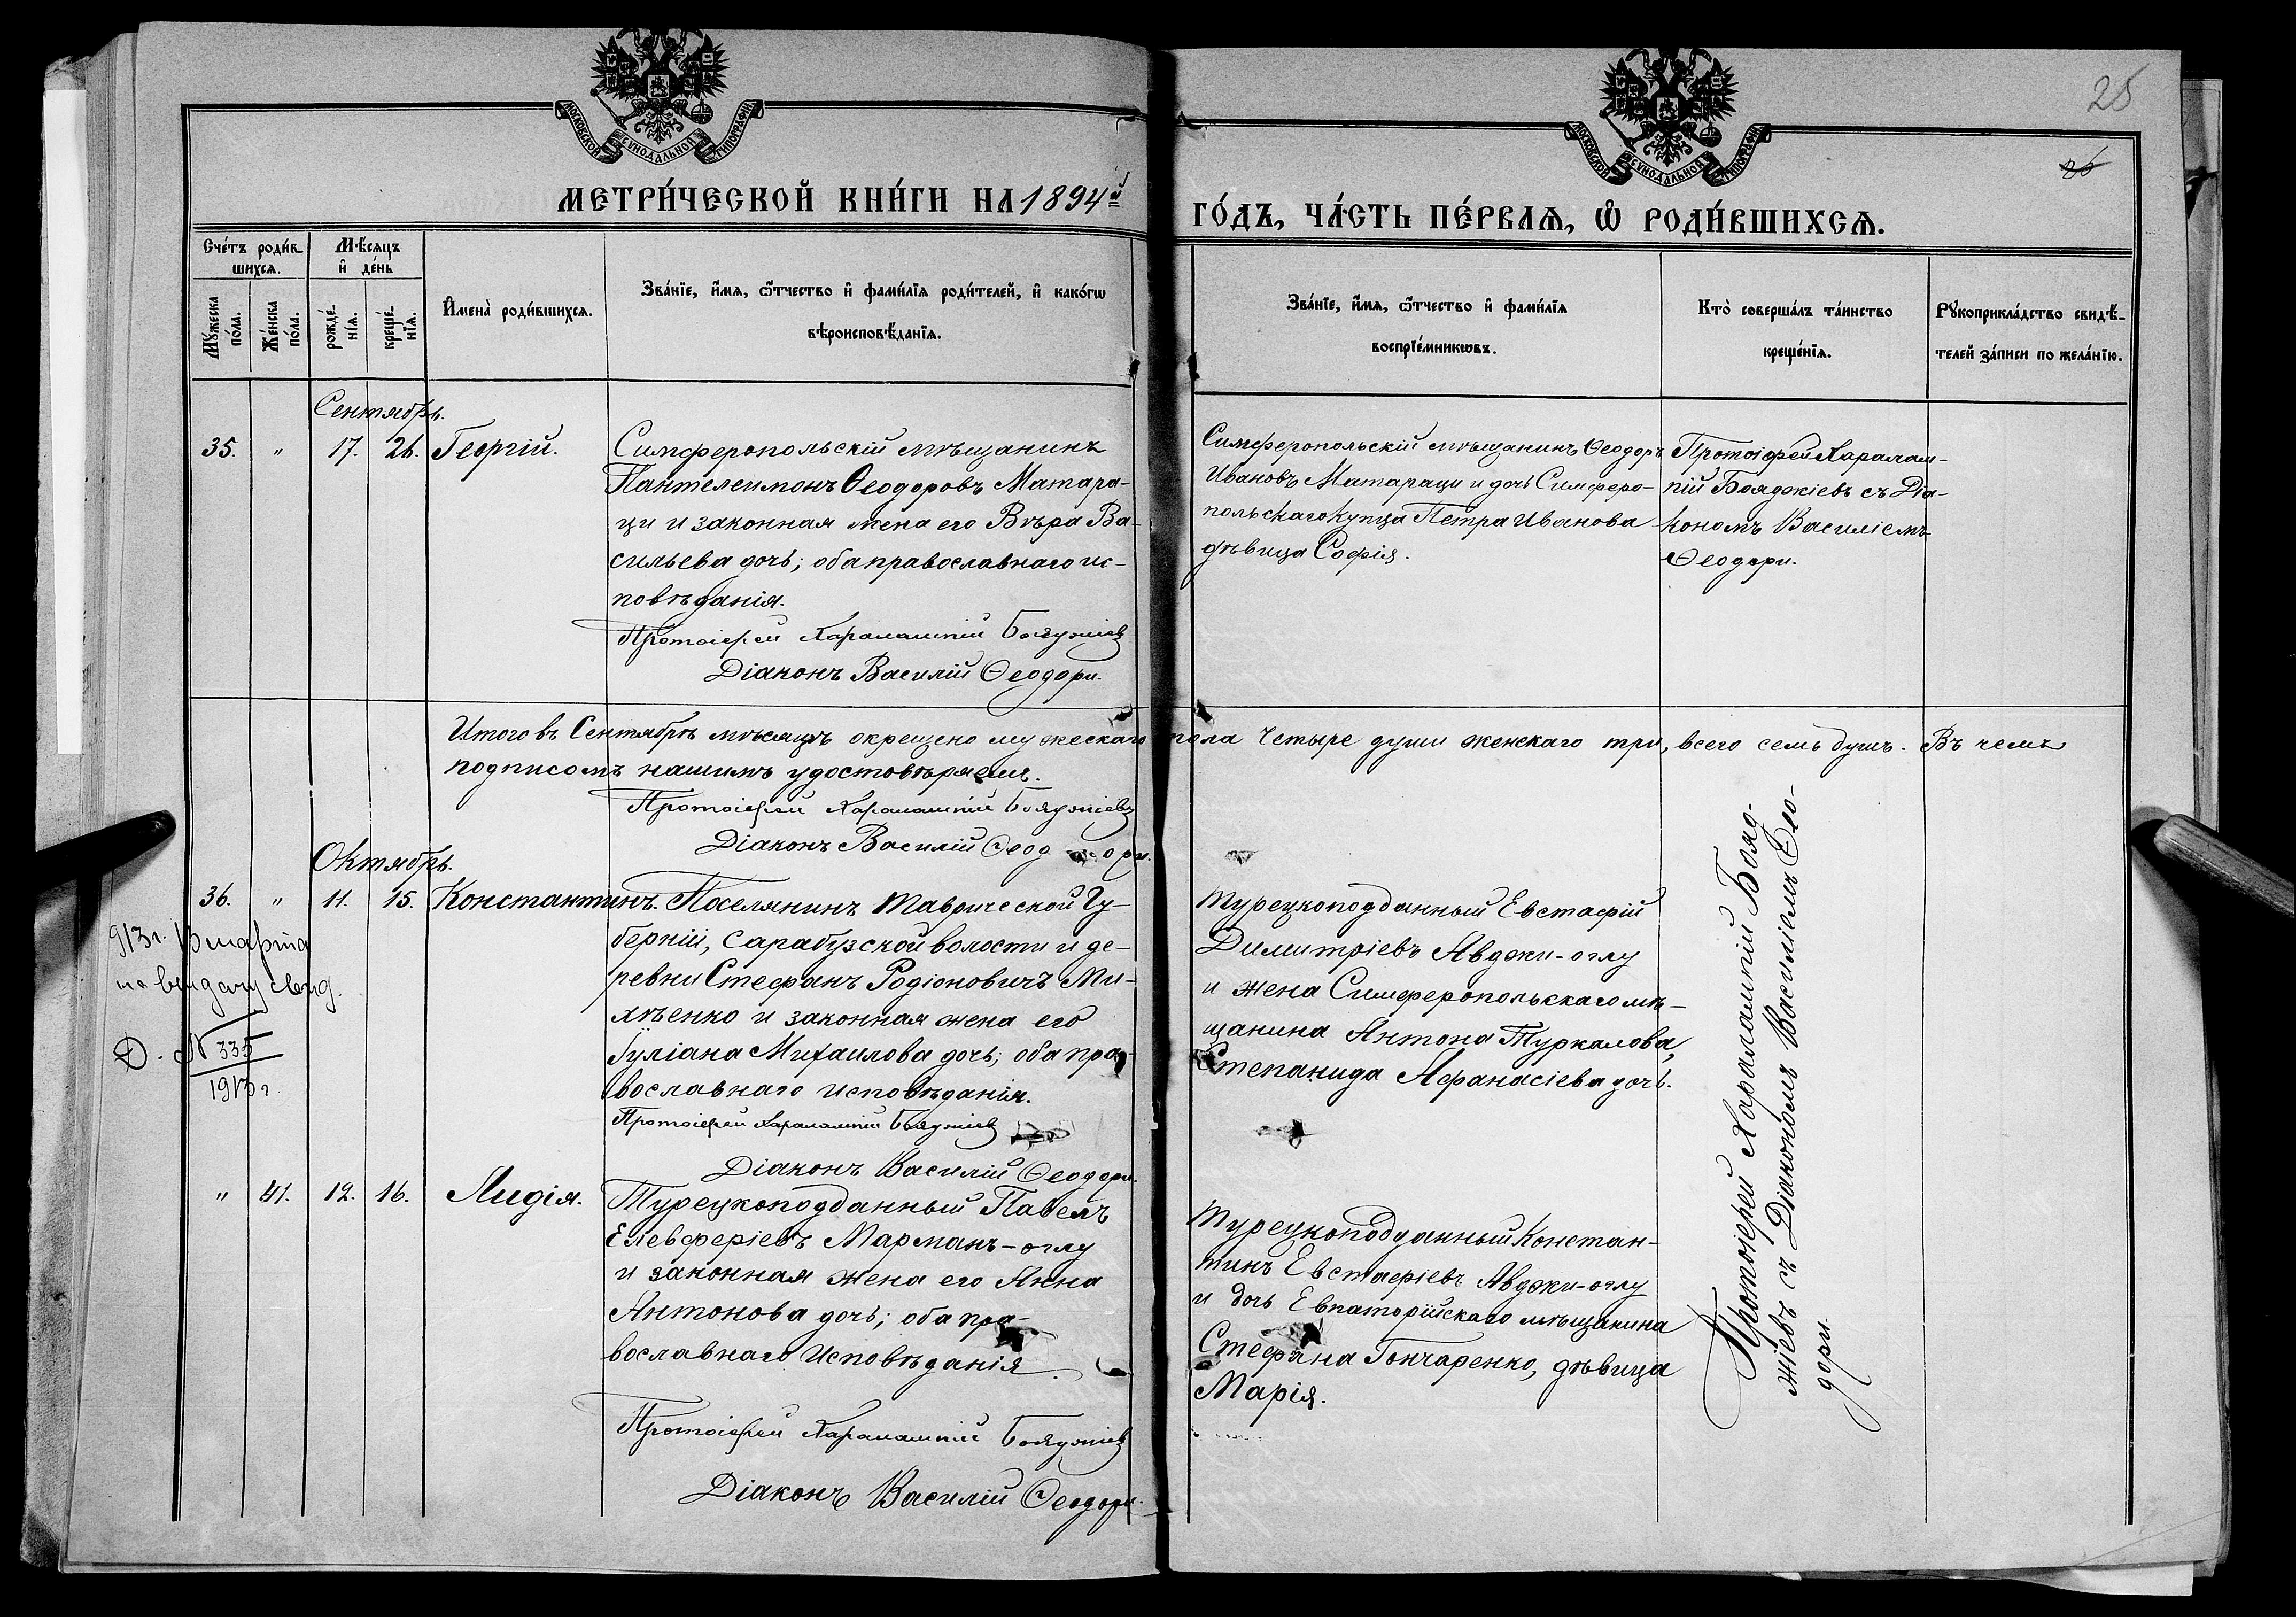 25
26
МОСКОВСКОЙ СѴНОДАЛЬНОЙ ТИПОГРАФІИ
МОСКОВСКОЙ СѴНОДАЛЬНОЙ ТИПОГРАФІИ
МЕТРИ́ЧЕСКОЙ КНИ́ГИ НА 1894й
ГО́ДЪ, ЧА́СТЬ ПЕ́РВАѦ, Ѽ РОДИ́ВШИХСѦ.
Сче́тъ роди́в-
шихсѧ.
Мѣ́сѧцъ
и҆ де́нь
Мꙋ́жеска
по́ла.
Же́нска
по́ла.
рожде́-
нїѧ.
креще́-
нїѧ.
И҆мена̀ роди́вшихсѧ.
Зва́нїе, и҆́мѧ, ѻ҆́тчество и҆ фами́лїѧ роди́телей, и҆ како́гѡ
вѣроисповѣ́данїѧ.
Зва́нїе, и҆́мѧ, ѻ҆́тчество и҆ фами́лїѧ
воспрїе́мникѡвъ.
Кто̀ соверша́лъ та́инство
креще́нїѧ.
Рꙋкоприкла́дство свидѣ́-
телей за́писи по жела́нїю.
Сентябрь.
35. " 17. 26. Георгій.
Симферопольскій мѣщанинъ
Пантелеимонъ Ѳеодоровъ Матара-
ци и законная жена его Вѣра Ва-
сильева дочь; оба православнаго ис-
повѣданія.
Протоіерей Харалампій Бояджіевъ
Діаконъ Василій Ѳеодори.
Симферопольскій мѣщанинъ Ѳеодоръ
Ивановъ Матараци и дочь Симферо-
польскаго купца Петра Иванова
дѣвица Софія.
Протоіерей Харалам-
пій Бояджіевъ съ Діа-
кономъ Василіемъ
Ѳеодори.
Итого въ Сентябрѣ мѣсяцѣ окрещено мужескаго пола четыре души женскаго три, всего семь душъ. Въ чемъ
подписомъ нашимъ удостовѣряемъ.
Протоіерей Харалампій Бояджіевъ
Діаконъ Василій Ѳеодори.
Октябрь.
36. " 11. 15. Константинъ.
Поселянинъ Таврической Гу-
берніи, Сарабузской волости и де-
ревни Стефанъ Родіоновичъ Ми-
хѣенко и законная жена его
Іуліана Михаилова дочь; оба пра-
вославнаго исповѣданія.
Протоіерей Харалампій Бояджіевъ
Діаконъ Василій Ѳеодори.
Турецкоподданный Евстафій
Димитріевъ Авджи-оглу
и жена Симферопольскаго мѣ-
щанина Антона Туркалова,
Степанида Афанасіева дочь.
913 г. 13 марта
на выдачу свид.
Д. № 335
1913 г.
" 41. 12. 16. Лидія.
Турецкоподданный Павелъ
Елевферіевъ Марманъ-оглу
и законная жена его Анна
Антонова дочь; оба пра-
вославнаго исповѣданія.
Протоіерей Харалампій Бояджіевъ
Діаконъ Василій Ѳеодори.
Турецкоподданный Констан-
тинъ Евстафіевъ Авджи-оглу
и дочь Евпаторійскаго мѣщанина
Стефана Гончаренко, дѣвица
Марія.
Протоіерей Харалампій Бояд-
жіевъ съ Діакономъ Василіемъ Ѳео-
дори.